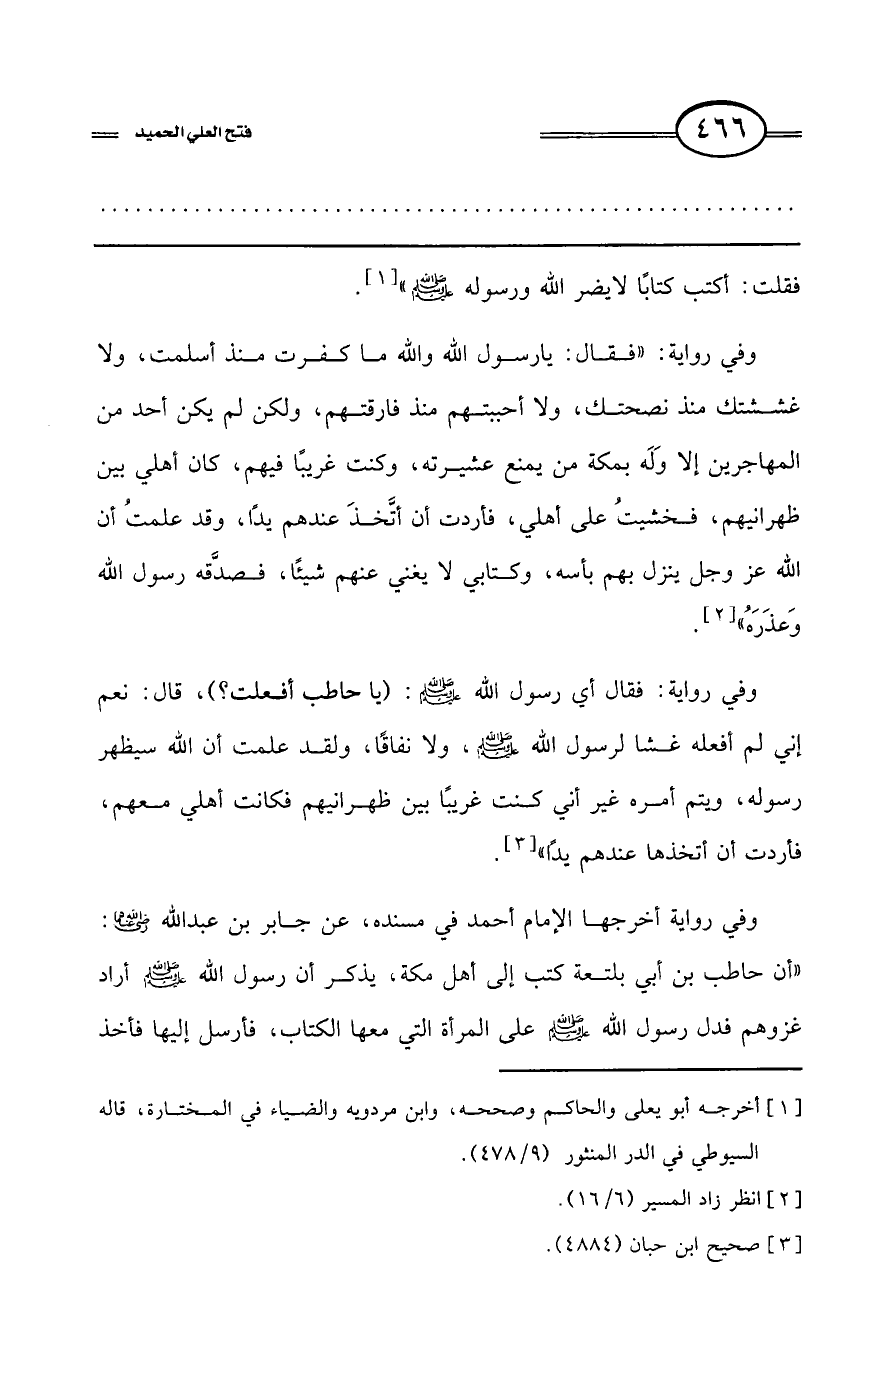 ٤٦٦ فتح العلي الحميد
فقلت: أكتب كتابًا لايضر الله ورسوله ﷺ»[١].
وفي رواية: «فقال: يارسول الله والله ما كفرت منذ أسلمت، ولا
غششتك منذ نصحتك، ولا أحببتهم منذ فارقتهم، ولكن لم يكن أحد من
المهاجرين إلا وَلَه بمكة من يمنع عشيرته، وكنت غريبًا فيهم، كان أهلي بين
ظهرانيهم، فخشيتُ على أهلي، فأردت أن أتَّخذَ عندهم يدًا، وقد علمتُ أن
الله عز وجل ينزل بهم بأسه، وكتابي لا يغني عنهم شيئًا، فصدَّقه رسول الله
وَعذَرَهُ»[٢].
وفي رواية: فقال أي رسول الله ﷺ: (يا حاطب أفعلت؟)، قال: نعم
إني لم أفعله غشا لرسول الله ﷺ، ولا نفاقًا، ولقد علمت أن الله سيظهر
رسوله، ويتم أمره غير أني كنت غريبًا بين ظهرانيهم فكانت أهلي معهم،
فأردت أن أتخذها عندهم يدًا»[٣].
وفي رواية أخرجها الإمام أحمد في مسنده، عن جابر بن عبدالله رضي الله عنهما:
«أن حاطب بن أبي بلتعة كتب إلى أهل مكة، يذكر أن رسول الله ﷺ أراد
غزوهم فدل رسول الله ﷺ على المرأة التي معها الكتاب، فأرسل إليها فأخذ
[١] أخرجه أبو يعلى والحاكم وصححه، وابن مردويه والضياء في المختارة، قاله
السيوطي في الدر المنثور (٤٧٨/٩).
[٢] انظر زاد المسير (١٦/٦).
[٣] صحيح ابن حبان (٤٨٨٤).